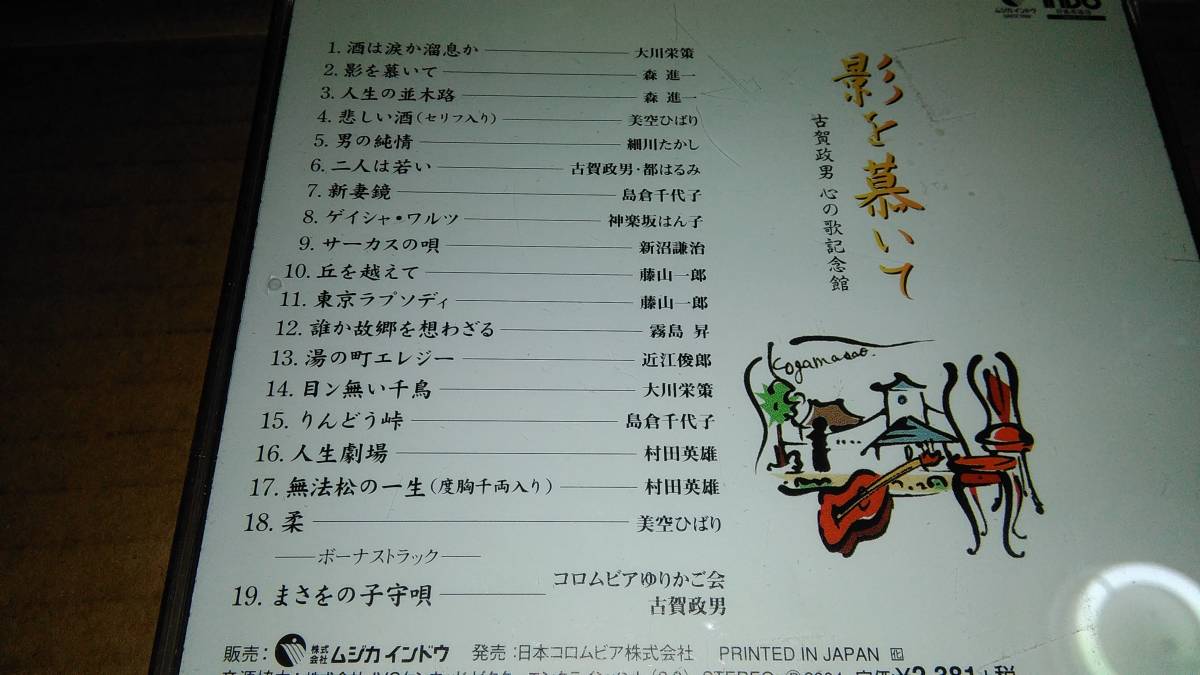 ムジカ インドウ
1. 酒は涙か溜息か 大川栄策
2. 影を慕いて 森 進一
3. 人生の並木路 森 進一
4. 悲しい酒(セリフ入り) 美空ひばり
5. 男の純情 細川たかし
6. 二人は若い 古賀政男・都はるみ
7. 新妻鏡 島倉千代子
8. ゲイシャ・ワルツ 神楽坂はん子
9. サーカスの唄 新沼謙治
10. 丘を越えて 藤山一郎
11. 東京ラプソディ 藤山一郎
12. 誰か故郷を想わざる 霧島 昇
13. 湯の町エレジー 近江俊郎
14. 目ン無い千鳥 大川栄策
15. りんどう峠 島倉千代子
16. 人生劇場 村田英雄
17. 無法松の一生(度胸千両入り) 村田英雄
18. 柔 美空ひばり
ボーナストラック
19. まさをの子守唄 コロムビアゆりかご会
古賀政男
影を慕いて
古賀政男 心の歌記念館
Kogamasao.
販売: 株式会社 ムジカ インドウ 発売:日本コロムビア株式会社 PRINTED IN JAPAN
STEREO